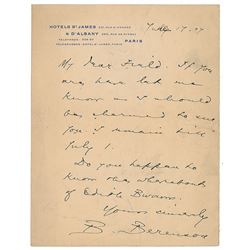 HOTELS ST JAMES
& D'ALBANY
PARIS
17 · 07
My dear Field. If you
are here let me
know as I should
be charmed to see
you. I remain till
July 1.
Do you happen to
know the whereabouts
of Edith Bwans.
Yours sincerely
B. Berenson